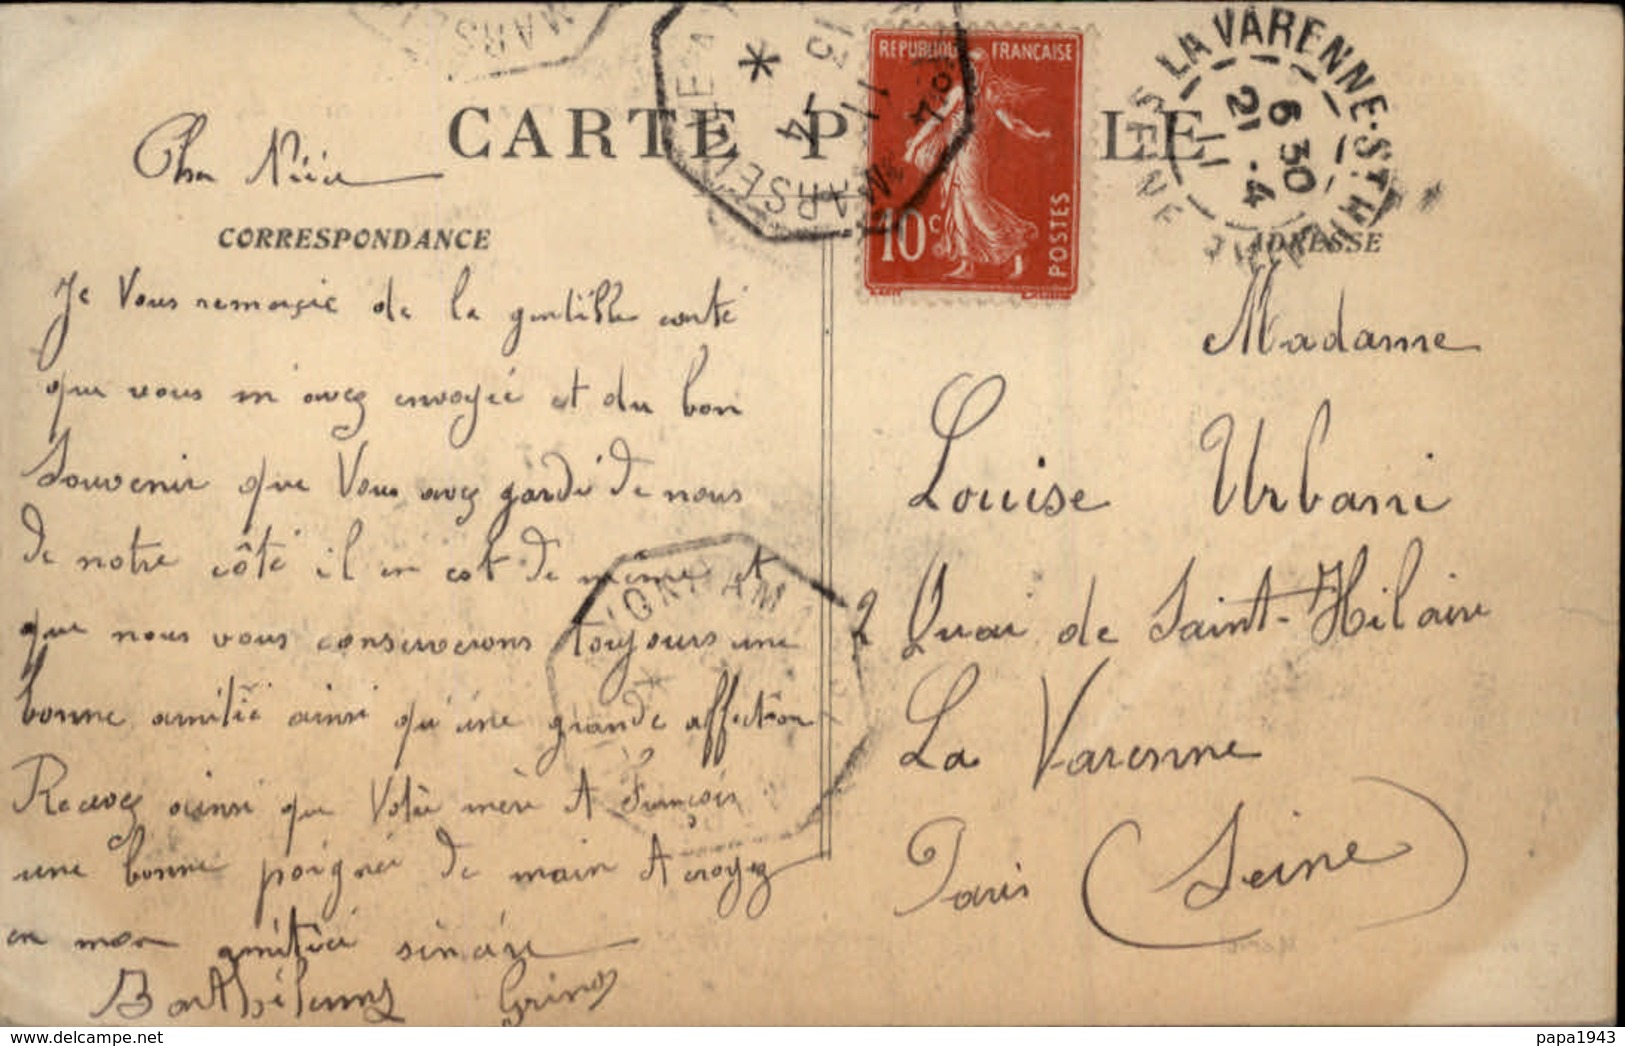 CARTE P LE
CORRESPONDANCE
Je Vous remerçie de la gentille carte
que vous m'avez envoyée et du bon
Souvenir que Vous avez gardé de nous
de notre côté il en est de même et
que nous vous conserverons toujours une
bonne amitié ainsi qu'une grande affection
Recevez ainsi que Votre mère et François
une bonne poignée de main et croyez
en mon amitiée sincère
Barthélemy
REPUBLIQUE FRANÇAISE
10c
POSTES
MARSEILLE A
11 - 4
MARS
LA VARENNE-ST-HI
SEINE
6 30
21 - 4
11
ADRESSE
Madame
Louise Urbani
2 Quai de Saint-Hilaire
La Varenne
Paris (Seine)
papa1943